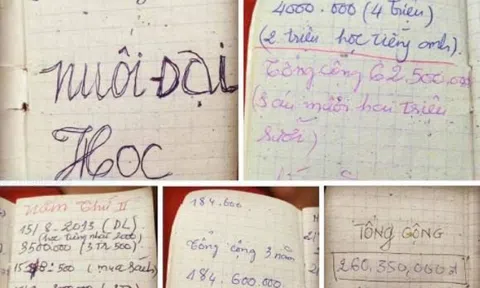 Nuôi Đại
Học
4000.000 (4 triệu)
(2 triệu học tiếng anh).
Tổng cộng 62.500.000
(Sáu mươi hai triệu
rưỡi)
Năm Thứ II
15/8-2013 (DL)
3500.000 (3 Tr 500)
(mua sách)
184.600
Tổng cộng 3 năm
184.600.000
TỔNG CỘNG
260.350.000đ